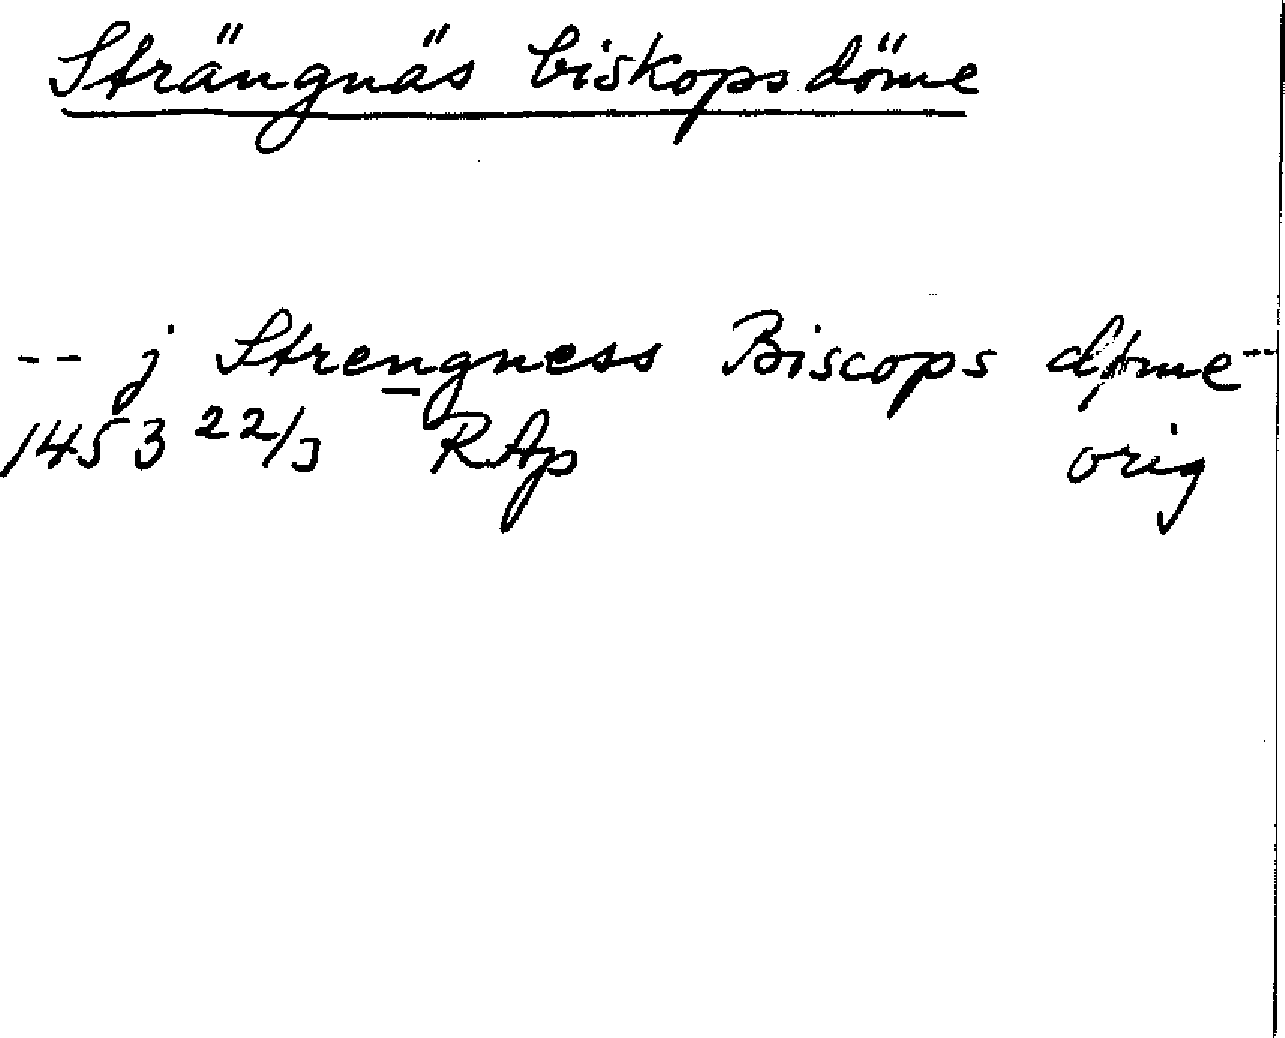 Strängnäs biskopsdöme
-- j Strengness Biscops døme --
1453 22/3 RAp orig